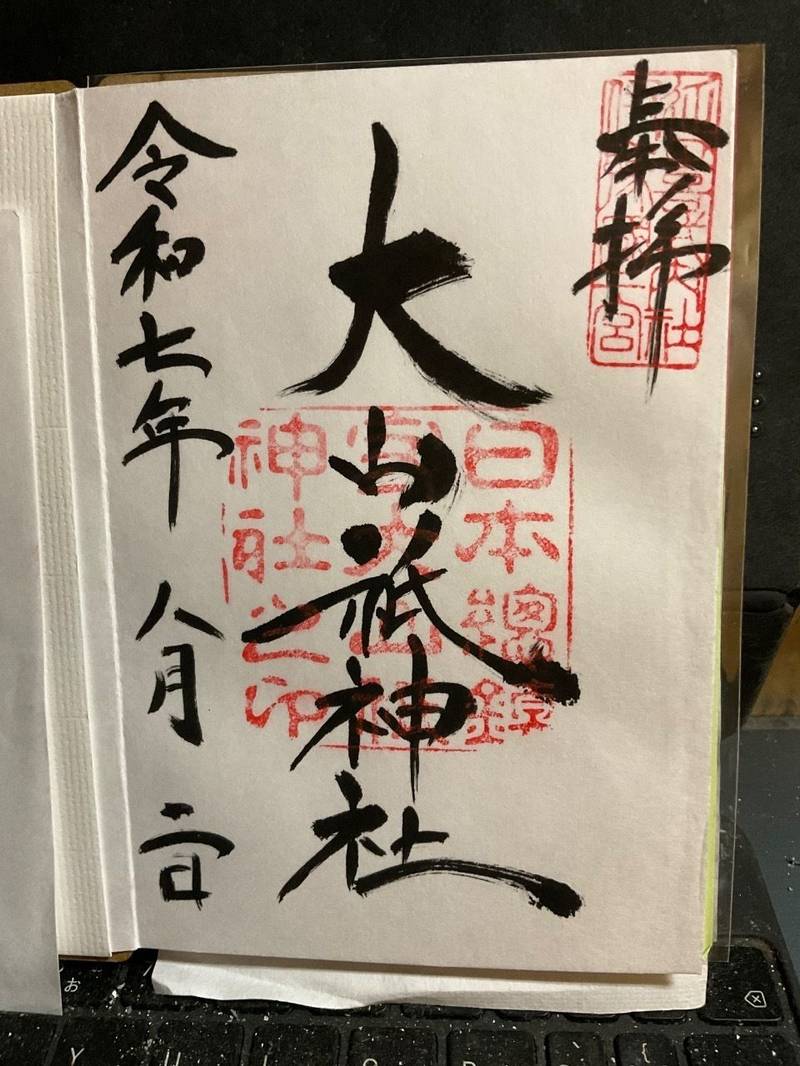 奉拝
大山祇神社
日本總鎮
守大山祇
神社之印
令和七年 八月 二日
お
Y U I O P {